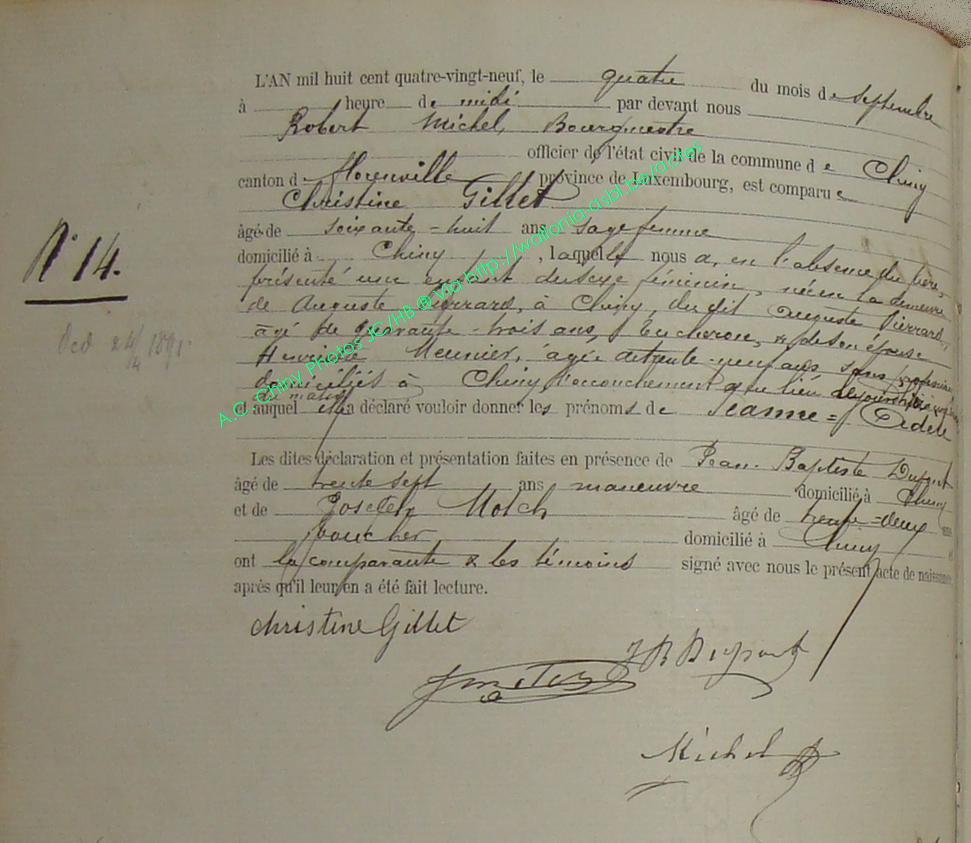 L'AN mil huit cent quatre-vingt-neuf, le quatre du mois de septembre
à heure de midi par devant nous
Robert Michel, Bourgmestre
officier de l'état civil de la commune de Chiny
canton d Florenville province de Luxembourg, est comparue
Christine Gillet
âgé de soixante-huit ans sage femme
domicilié à Chiny, laquelle nous a, en l'absence du père,
N° 14.
présenté un enfant du sexe féminin, né en la demeure
de Auguste Pierrard, à Chiny, du dit Auguste Pierrard,
âgé de quarante-trois ans, Bucheron, & de son épouse
Ded 24/4 1891
Henriette Meunier, âgée de trente-neuf ans sans profession
domiciliés à Chiny, l'accouchement a eu lieu
du matin
et auquel elle a déclaré vouloir donner les prénoms de Jeanne = Adele
Les dites déclaration et présentation faites en présence de Jean-Baptiste Dupont
âgé de trente sept ans manœuvre domicilié à Chiny
et de Joseph Motch âgé de trente-deux ans
boucher domicilié à Chiny
ont la comparante & les témoins signé avec nous le présent acte de naissance
après qu'il leur en a été fait lecture.
Christine Gillet
J B Dupont
Michel R
A.C. Chiny Photos JC/HB ® Via http://wallonia.asbl.be/actes